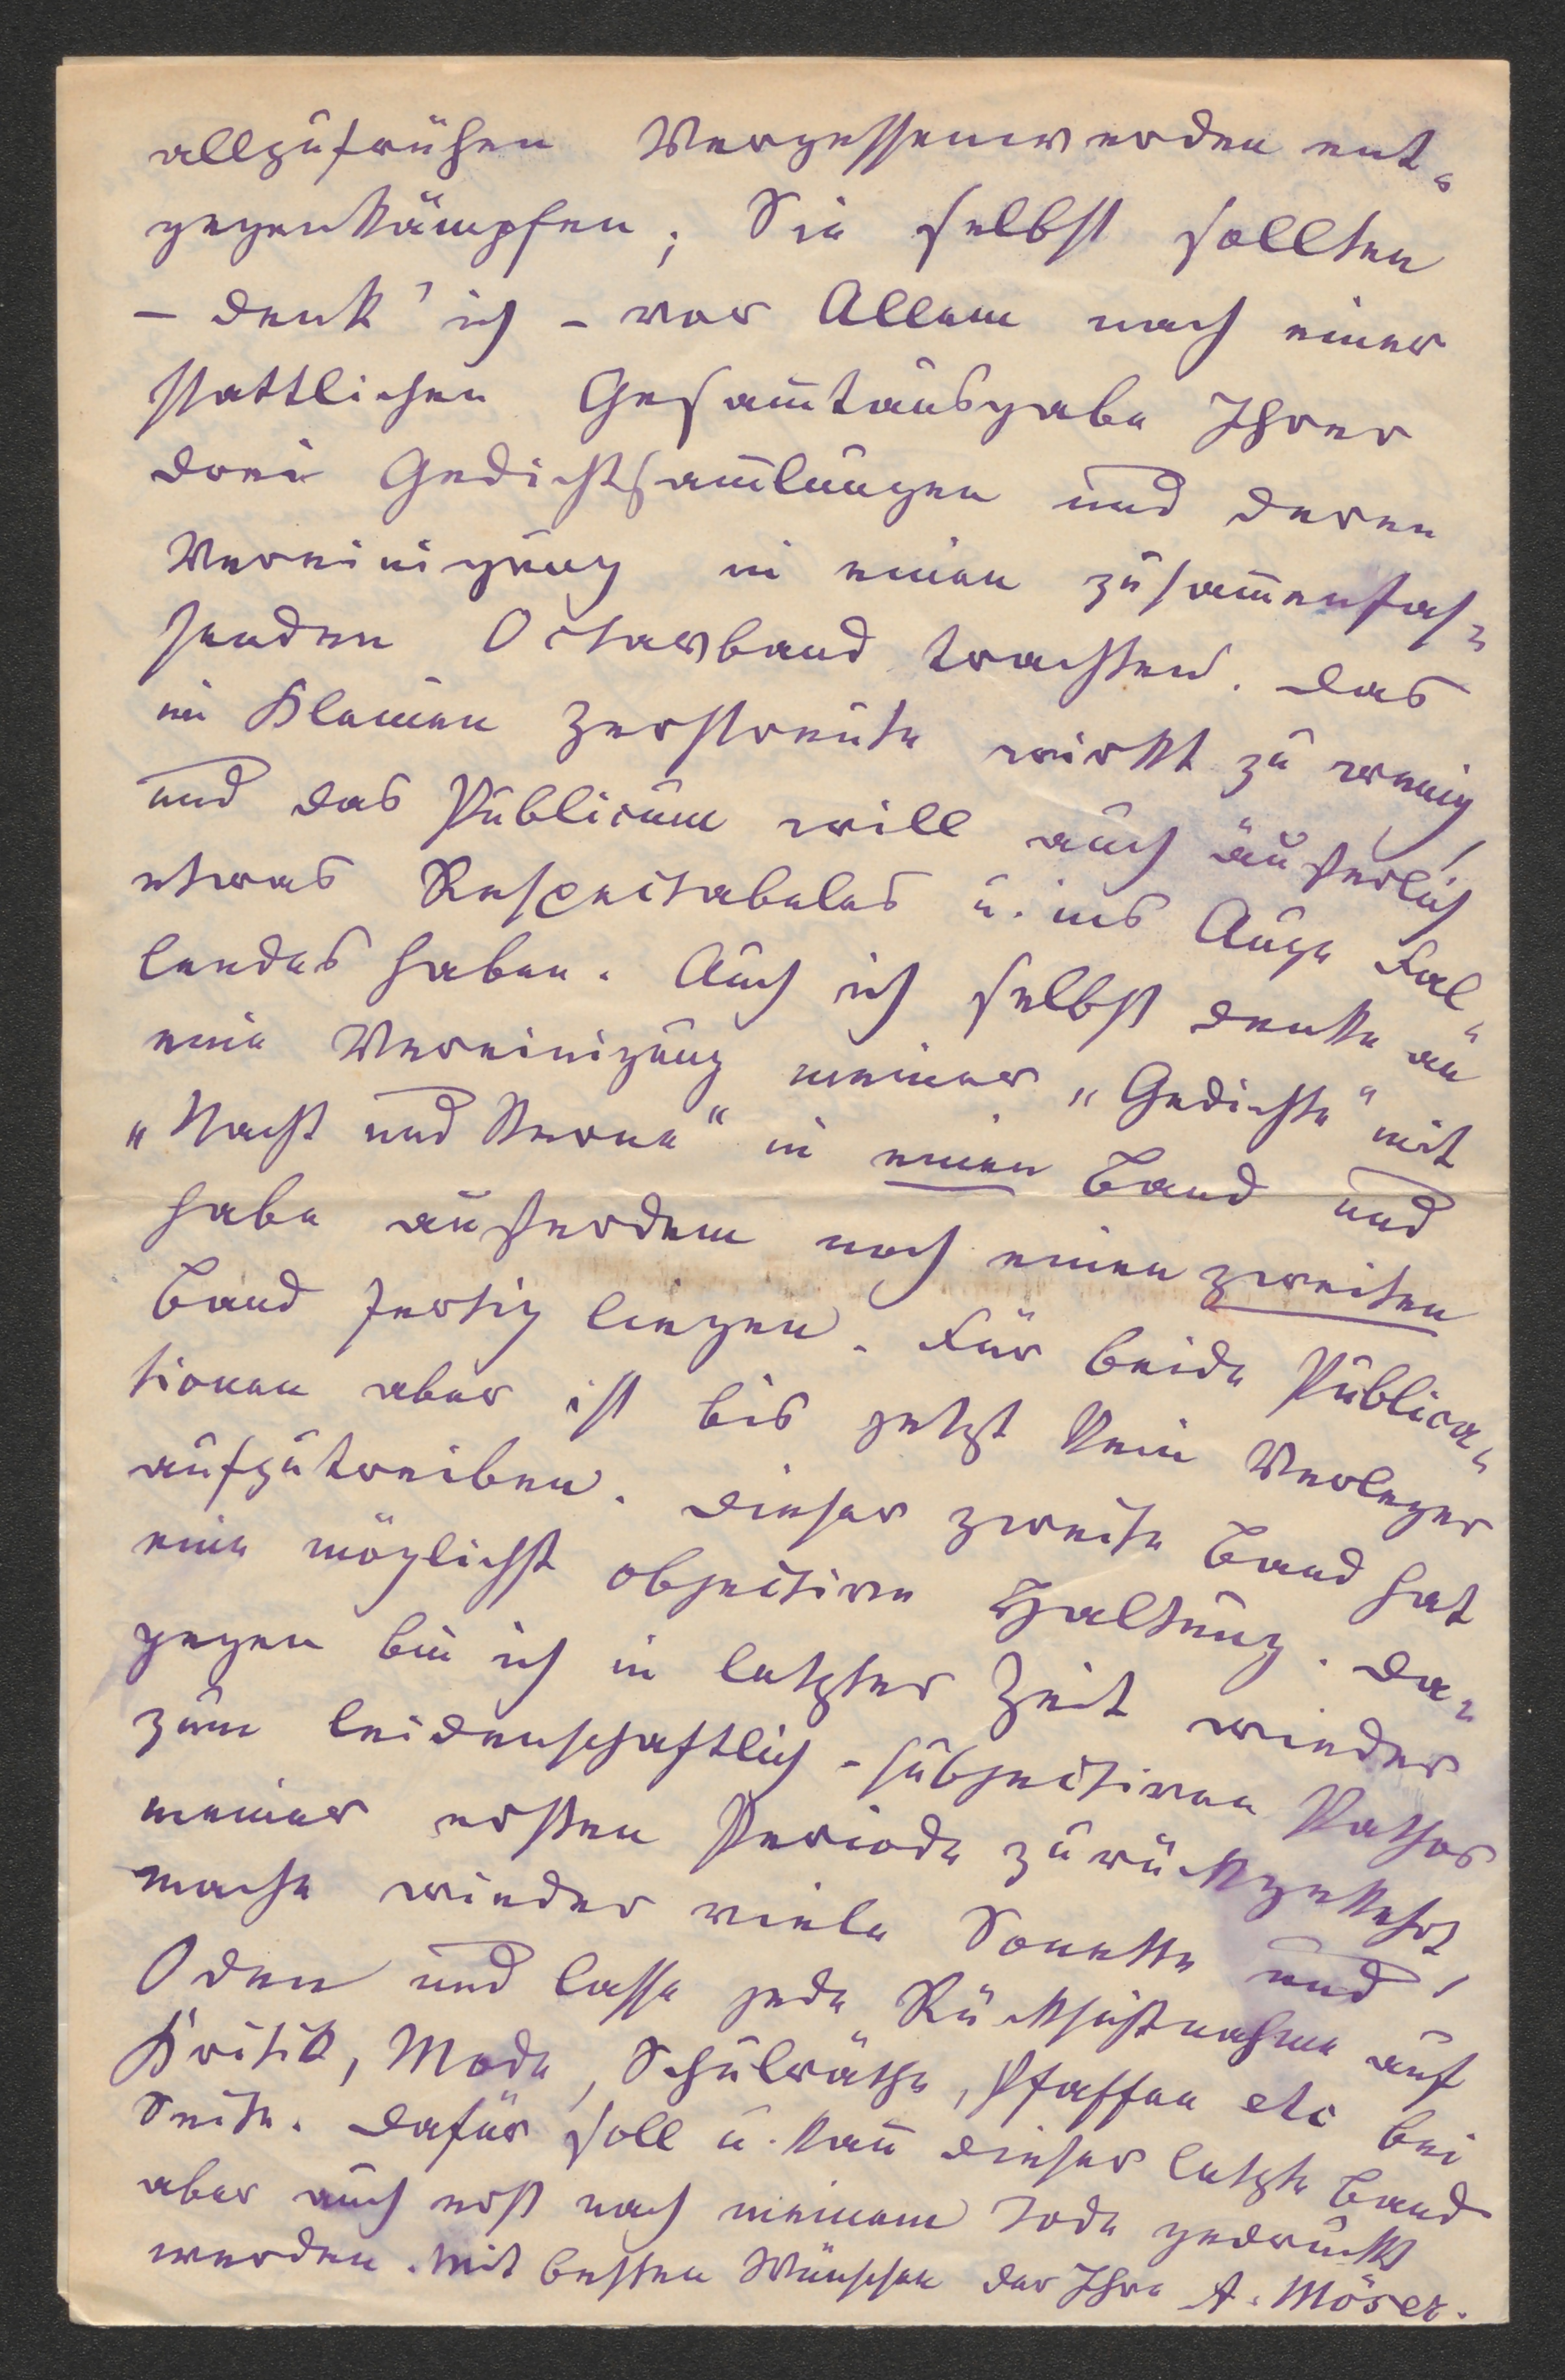 allzufrühen Vergessenwerden ent-
gegenkämpfen; Sie selbst sollten
– denk' ich – vor Allem nach einer
stattlichen Gesam̅tausgabe Ihrer
drei Gedichtsam̅lungen und deren
Vereinigung in einen zusam̅enfas-
senden Octavband trachten. Das
im Kleinen Zerstreute wirkt zu wenig,
und das Publicum will auch äußerlich
etwas Respectabeles u. ins Auge Fal-
lendes haben. Auch ich selbst denke an
eine Vereinigung meiner „Gedichte" mit
„Nacht und Sterne" in einen Band und
habe außerdem noch einen zweiten
Band fertig liegen. Für beide Publica-
tionen aber ist bis jetzt kein Verleger
aufzutreiben. Dieser zweite Band hat
eine möglichst objective Haltung. Da-
gegen bin ich in letzter Zeit wieder
zum leidenschaftlich-subjectiven Pathos
meiner ersten Periode zurückgekehrt,
mache wieder viele Sonette und
Oden und lasse jede Rücksichtnahme auf
Kritik, Mode, Schulräthe, Pfaffen etc bei
Seite. Dafür soll u. kan̅ dieser letzte Band
aber auch erst nach meinem Tode gedruckt
werden. Mit besten Wünschen der Ihre A. Möser.